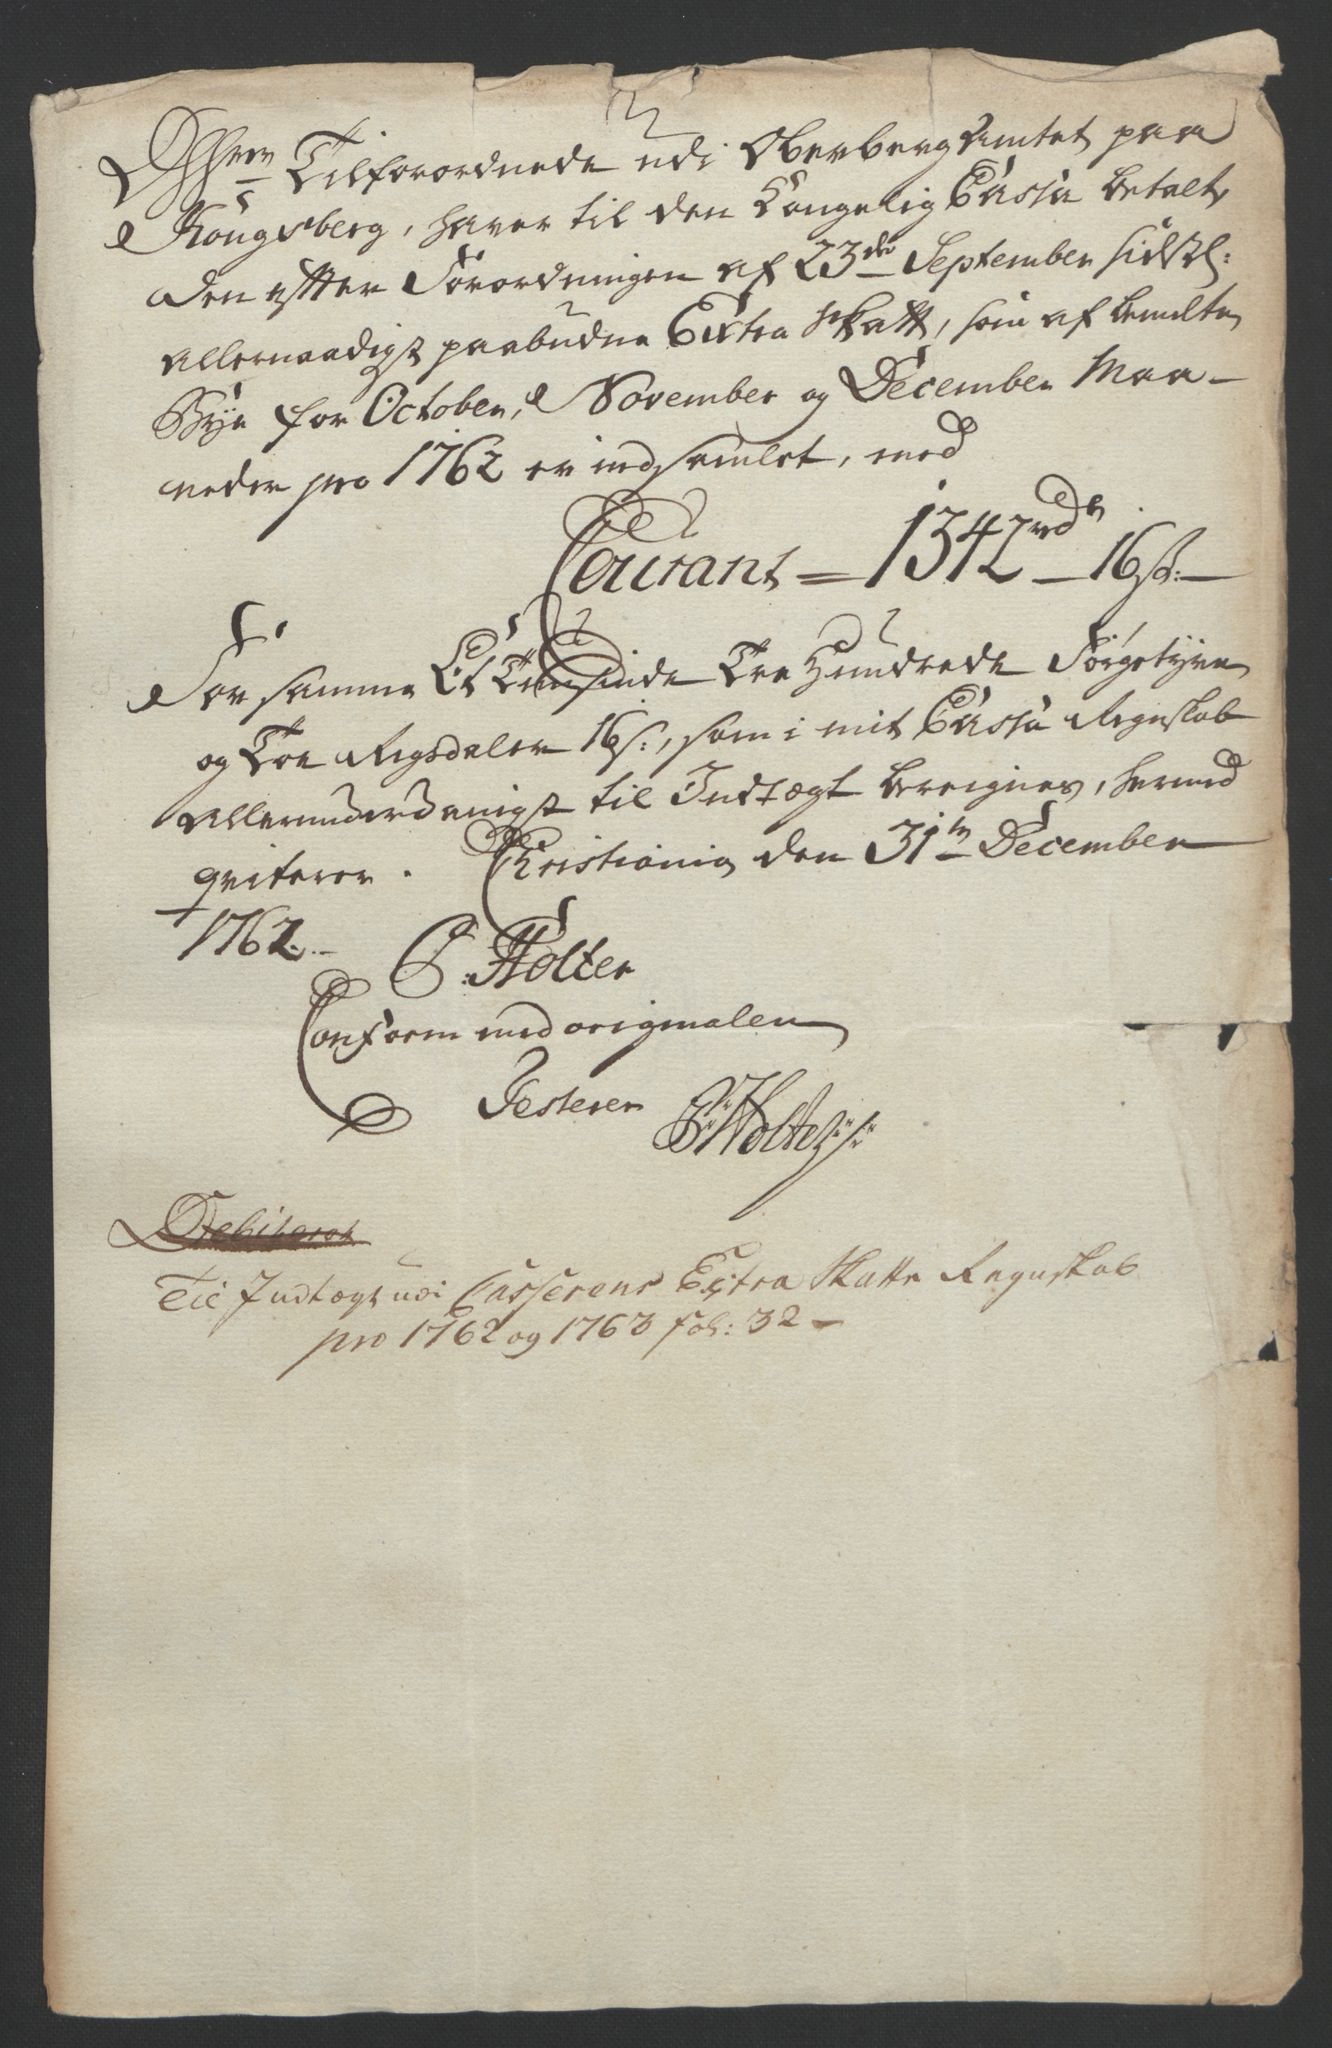 Herrer Tilforordnede udi Oberberg Amtet paa
Kongsberg, haver til den Kongelig Cassa betalt,
den efter Forordningen af 23de September sidstl:
allernaadigst paabudne Extra Skatt, som af bemelte
Bye for October, November og December Maa-
neder pro 1762 er indsamlet, med
Courant = 1342 rdr - 16 s:
For samme Et Tusinde Tre Hundrede Førgetyve
og Toe Rigsdaler 16 s:, som i mit Cassa Regnskab
allerunderdanigst til Indtægt beregnes, hermed
qviterer. Christiania den 31te December
1762.
C: Holter
Conform med originalen
Testerer Holter
Debiteret
Til Indtægt udi Casserens Extra Skatte Regnskab
pro 1762 og 1763 fol: 32